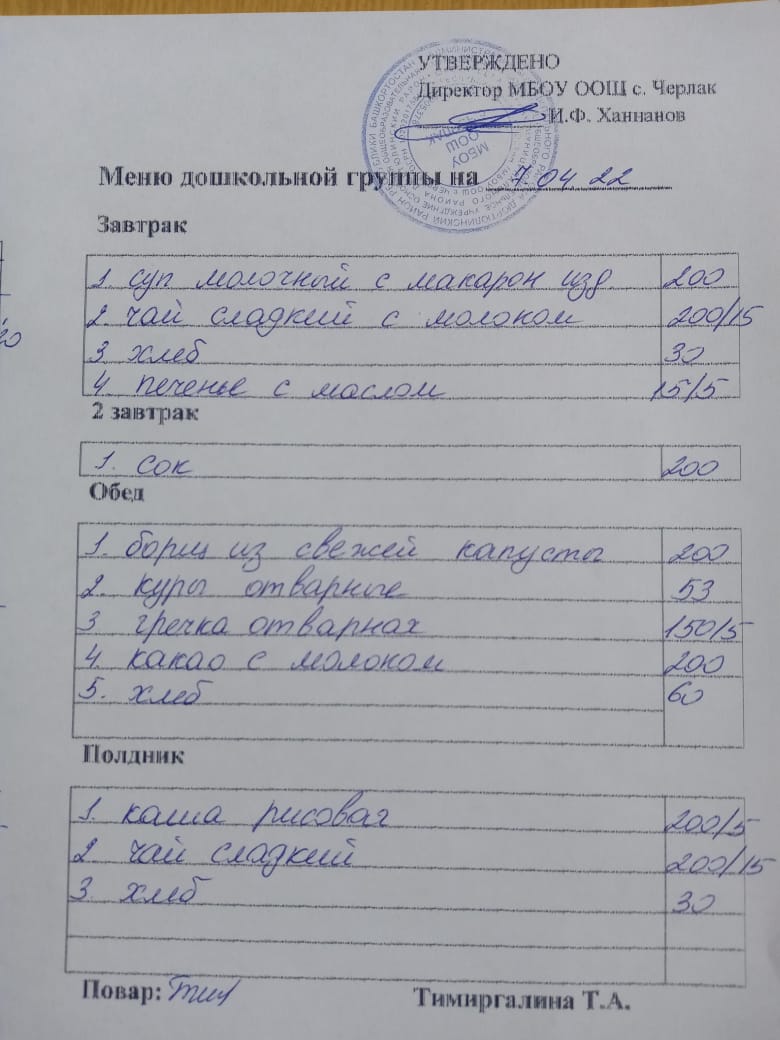 УТВЕРЖДЕНО
Директор МБОУ ООШ с. Черлак
И.Ф. Ханнанов
МБОУ
ООШ
Меню дошкольной группы на 7.04 22
Завтрак
1. суп молочный с макарон изд 200
2. чай сладкий с молоком 200/15
3. хлеб 30
4. печенье с маслом 15/5
2 завтрак
1. сок 200
Обед
1. борщ из свежей капусты 200
2. куры отварные 53
3 гречка отварная 150/5
4. какао с молоком 200
5. хлеб 60
Полдник
1. каша рисовая 200/5
2. чай сладкий 200/15
3. хлеб 30
Повар: Тимиргалина Т.А.